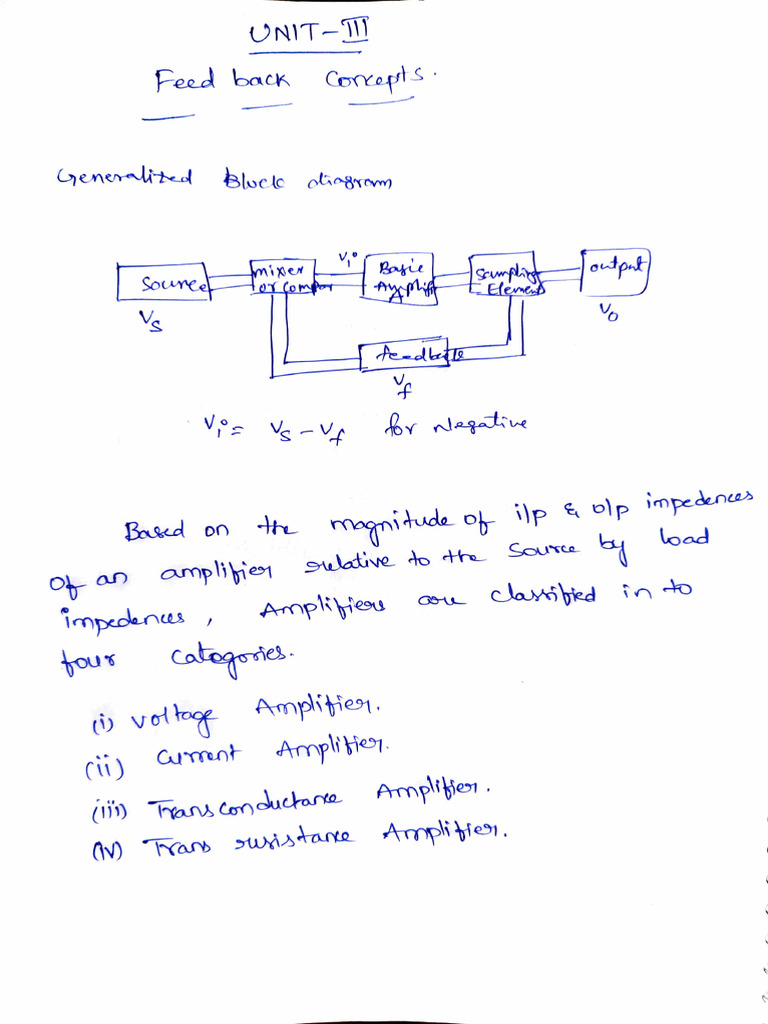 UNIT-III
Feed back Concepts.
Generalized Block diagram
Source
mixer
or Compar
Vi
Basic
Amplifi
A
Sampling
Element
output
Vs
Vo
feedback
Vf
Vi = Vs - Vf for Negative
Based on the magnitude of i/p & o/p impedences
of an amplifier relative to the source by load
impedences, Amplifiers are classified in to
four categories.
(i) Voltage Amplifier.
(ii) Current Amplifier.
(iii) Trans conductance Amplifier.
(iv) Trans resistance Amplifier.